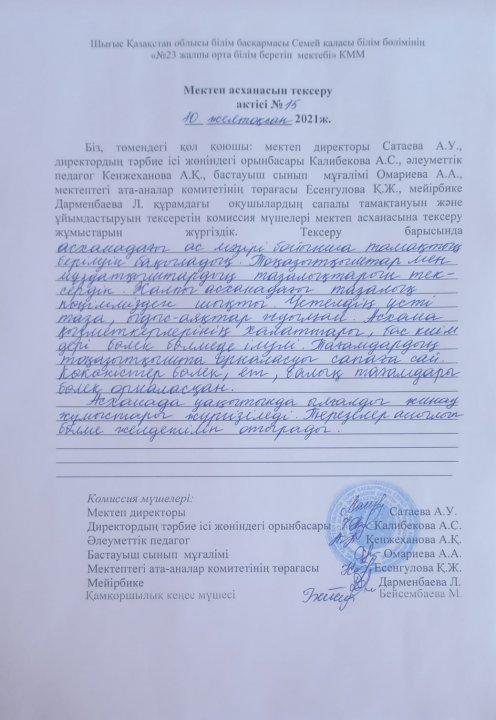 Шығыс Қазақстан облысы білім басқармасы Семей қаласы білім бөлімінің
«№23 жалпы орта білім беретін мектебі» КММ
Мектеп асханасын тексеру
актісі № 15
10 желтоқсан 2021ж.
Біз, төмендегі қол қоюшы: мектеп директоры Сатаева А.У.,
директордың тәрбие ісі жөніндегі орынбасары Калибекова А.С., әлеуметтік
педагог Кенжеханова А.Қ., бастауыш сынып мұғалімі Омариева А.А.,
мектептегі ата-аналар комитетінің төрағасы Есенгулова Қ.Ж., мейірбике
Дарменбаева Л. құрамдағы оқушылардың сапалы тамақтануын және
ұйымдастыруын тексеретін комиссия мүшелері мектеп асханасына тексеру
жұмыстарын жүргіздік. Тексеру барысында
асханадағы ас мәзірі бойынша тамақтың
берілуін бақыладық. Тоңазытқыштар мен
мұздатқыштардың тазалықтарын тек-
сердік. Жалпы асханадағы тазалық
көңілімізден шықты. Үстелдің үсті
таза, ыдыс-аяқтар жуылған. Асхана
қызметкерлерінің халаттары, бас киім
дері бөлек бөлмеде ілулі. Тағамдардың
тоңазытқышта орналасуы сапаға сай.
Көкөністер бөлек, ет, балық тағамдары
бөлек орналасқан.
Асханада уақытында ылғалды жинау
жұмыстары жүргізіледі. Терезелер ашылып
бөлме желдетіліп отырады.
Комиссия мүшелері:
Мектеп директоры Сатаева А.У.
Директордың тәрбие ісі жөніндегі орынбасары Калибекова А.С.
Әлеуметтік педагог Кенжеханова А.Қ.
Бастауыш сынып мұғалімі Омариева А.А.
Мектептегі ата-аналар комитетінің төрағасы Есенгулова Қ.Ж.
Мейірбике Дарменбаева Л.
Қамқоршылық кеңес мүшесі Бейсембаева М.